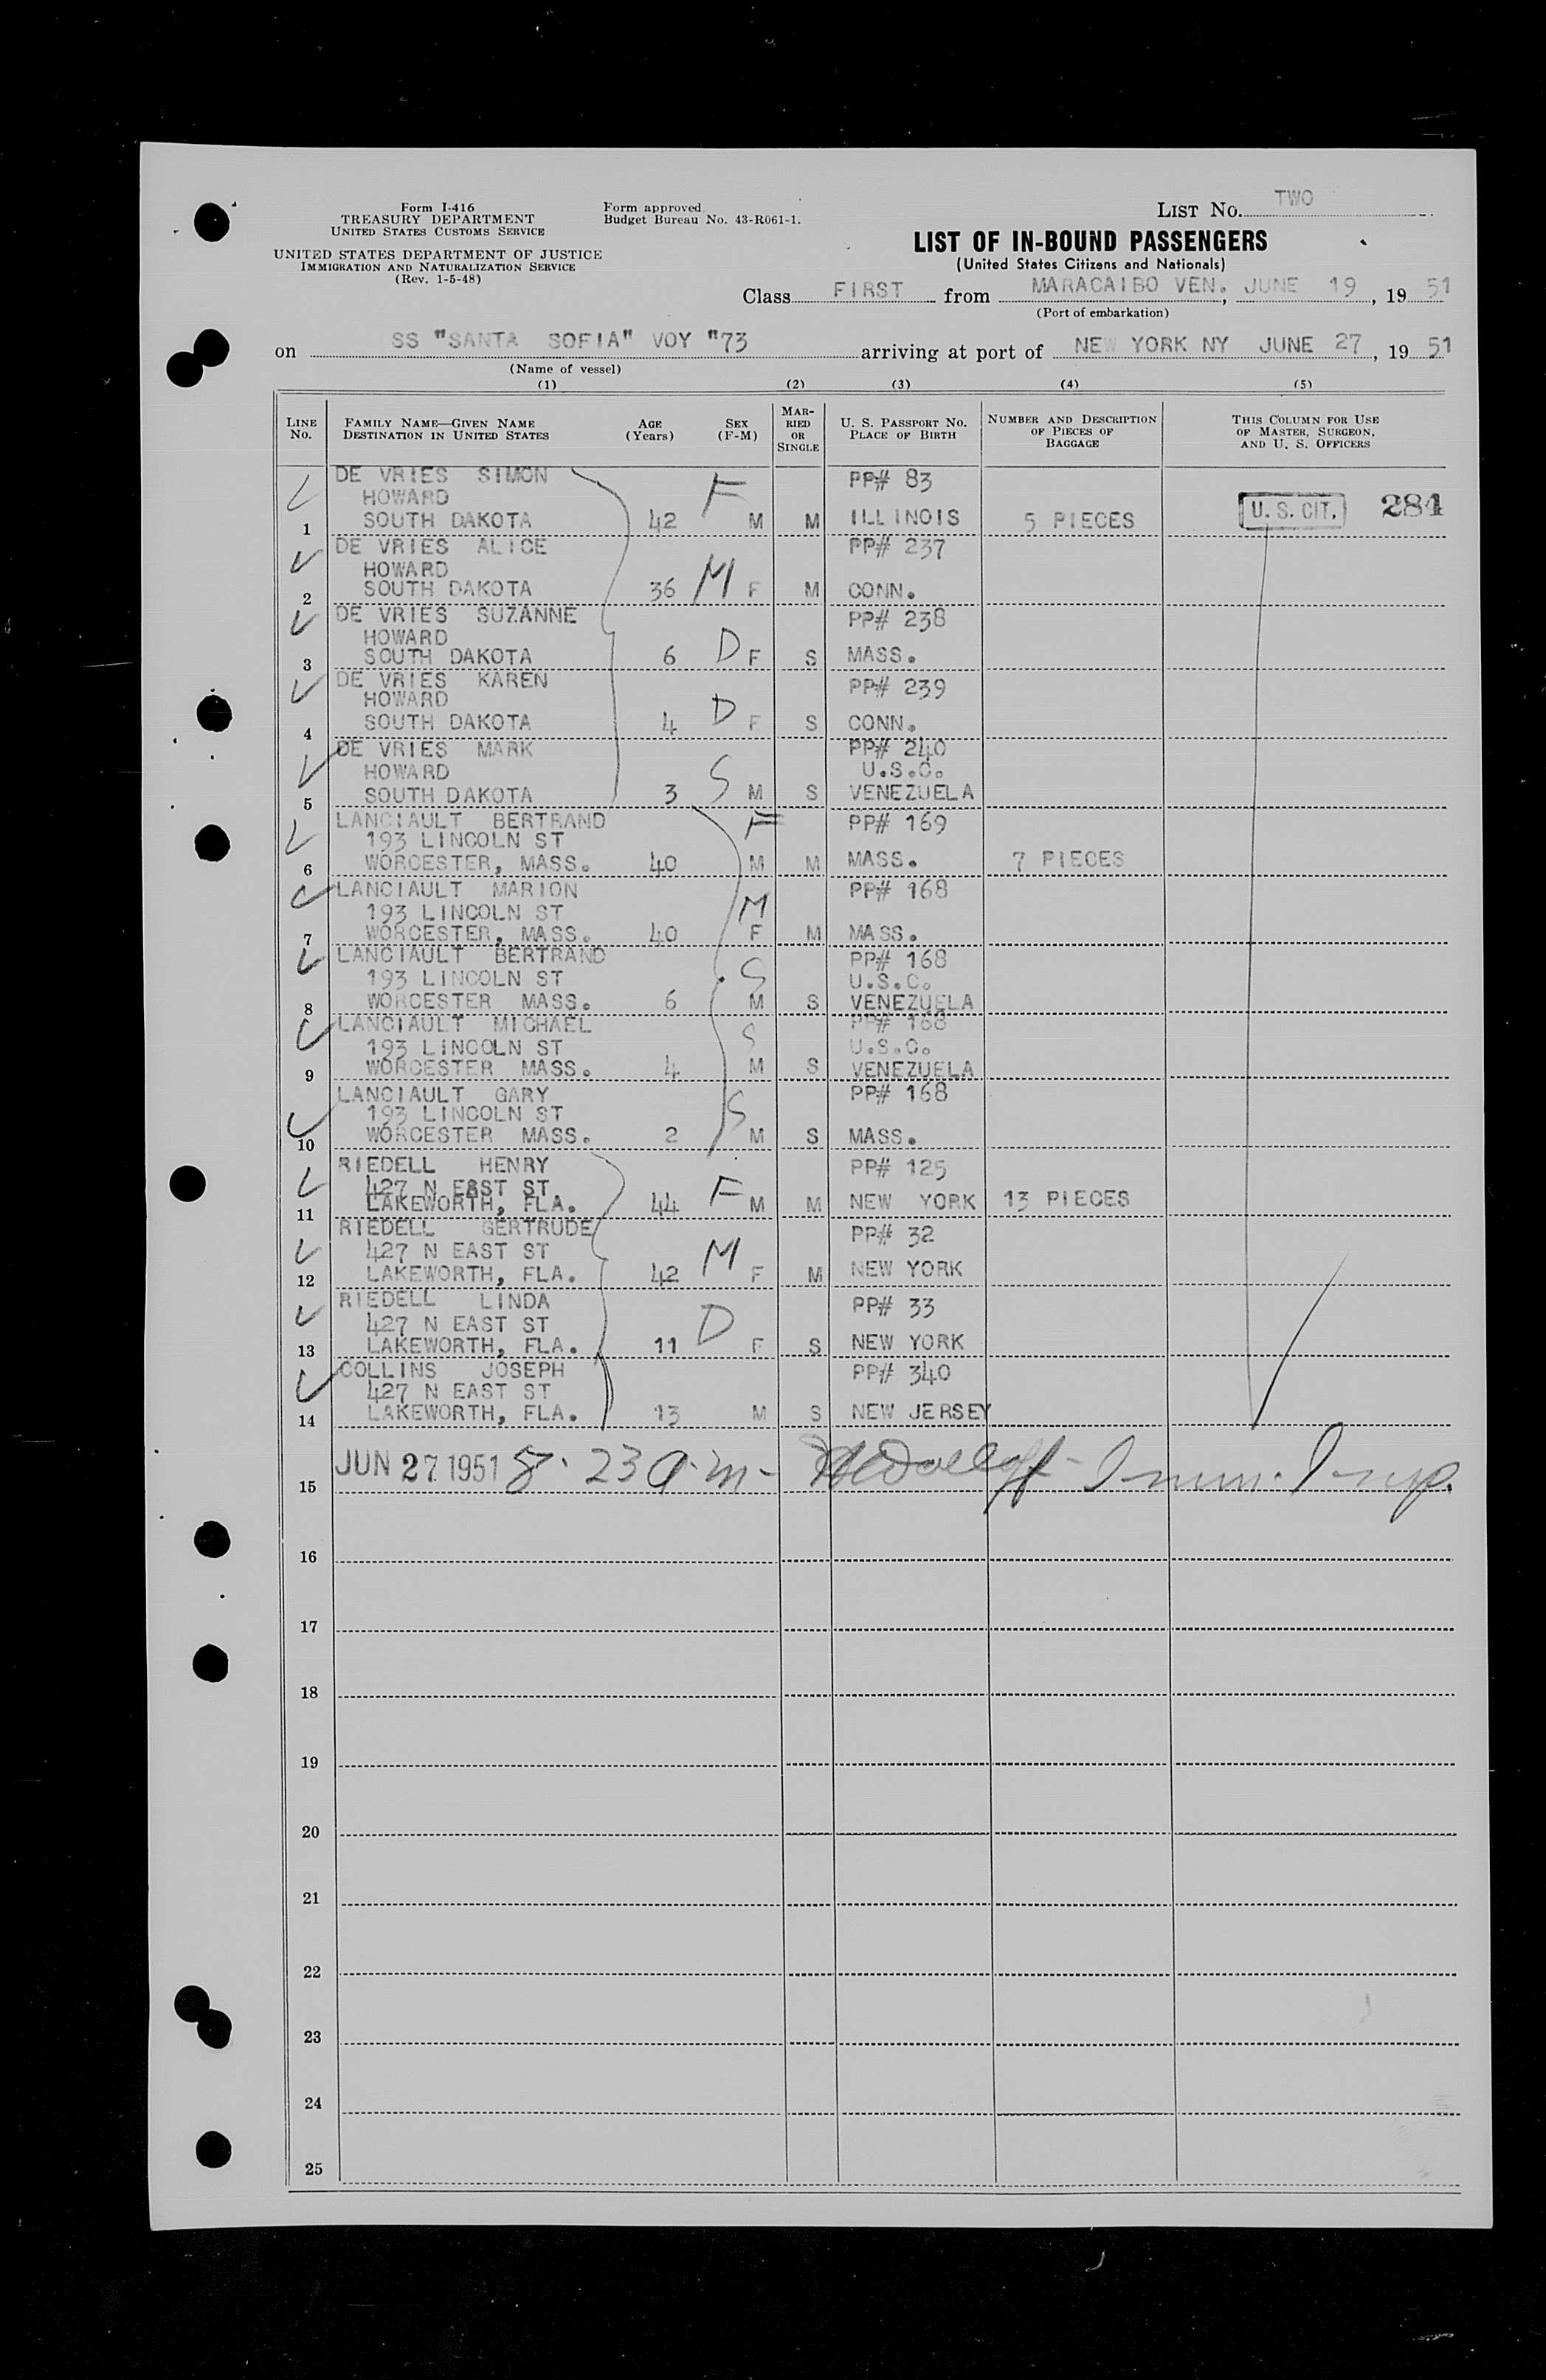 Form I-416
TREASURY DEPARTMENT
UNITED STATES CUSTOMS SERVICE
UNITED STATES DEPARTMENT OF JUSTICE
IMMIGRATION AND NATURALIZATION SERVICE
(Rev. 1-5-48)
Form approved
Budget Bureau No. 43-R061-1.
LIST No. TWO
LIST OF IN-BOUND PASSENGERS
(United States Citizens and Nationals)
Class FIRST from MARACAIBO VEN., JUNE 19, 19 51
(Port of embarkation)
on SS "SANTA SOFIA" VOY "73 arriving at port of NEW YORK NY JUNE 27, 19 51
(Name of vessel)
(1) (2) (3) (4) (5)
LINE No. FAMILY NAME—GIVEN NAME DESTINATION IN UNITED STATES AGE (Years) SEX (F-M) MARRIED OR SINGLE U. S. PASSPORT No. PLACE OF BIRTH NUMBER AND DESCRIPTION OF PIECES OF BAGGAGE THIS COLUMN FOR USE OF MASTER, SURGEON, AND U. S. OFFICERS
DE VRIES SIMON PP# 83
HOWARD F U. S. CIT. 284
1 SOUTH DAKOTA 42 M M ILLINOIS 5 PIECES
DE VRIES ALICE PP# 237
HOWARD
2 SOUTH DAKOTA 36 M F M CONN.
DE VRIES SUZANNE PP# 238
HOWARD
3 SOUTH DAKOTA 6 D F S MASS.
DE VRIES KAREN PP# 239
HOWARD
4 SOUTH DAKOTA 4 D F S CONN.
DE VRIES MARK PP# 240
HOWARD U.S.C.
5 SOUTH DAKOTA 3 S M S VENEZUELA
LANCIAULT BERTRAND F PP# 169
193 LINCOLN ST
6 WORCESTER, MASS. 40 M M MASS. 7 PIECES
LANCIAULT MARION PP# 168
193 LINCOLN ST M
7 WORCESTER, MASS. 40 F M MASS.
LANCIAULT BERTRAND PP# 168
193 LINCOLN ST S U.S.C.
8 WORCESTER MASS. 6 M S VENEZUELA
LANCIAULT MICHAEL PP# 168
193 LINCOLN ST S U.S.C.
9 WORCESTER MASS. 4 M S VENEZUELA
LANCIAULT GARY PP# 168
193 LINCOLN ST S
10 WORCESTER MASS. 2 M S MASS.
RIEDELL HENRY PP# 125
427 N EAST ST F
11 LAKEWORTH, FLA. 44 M M NEW YORK 13 PIECES
RIEDELL GERTRUDE PP# 32
427 N EAST ST M
12 LAKEWORTH, FLA. 42 F M NEW YORK
RIEDELL LINDA PP# 33
427 N EAST ST D
13 LAKEWORTH, FLA. 11 F S NEW YORK
COLLINS JOSEPH PP# 340
427 N EAST ST
14 LAKEWORTH, FLA. 13 M S NEW JERSEY
15 JUN 27 1951 8.23 a.m- Imm. Insp.
16
17
18
19
20
21
22
23
24
25